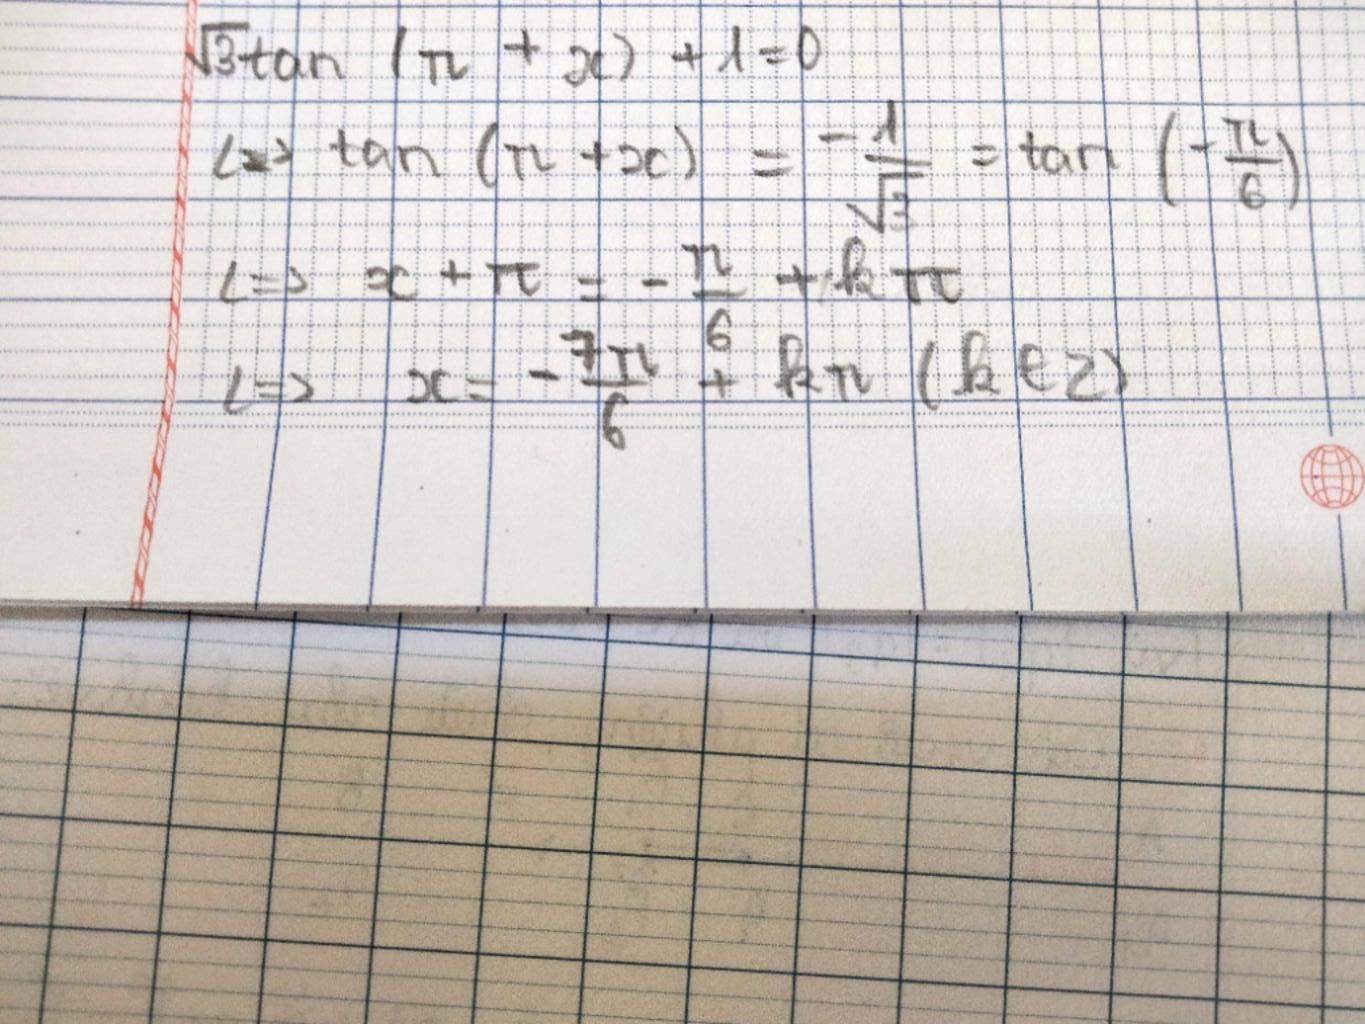 √3tan (π + x) + 1 = 0
<=> tan (π + x) = -1/√3 = tan (-π/6)
<=> x + π = -π/6 + kπ
<=> x = -7π/6 + kπ (k ∈ Z)